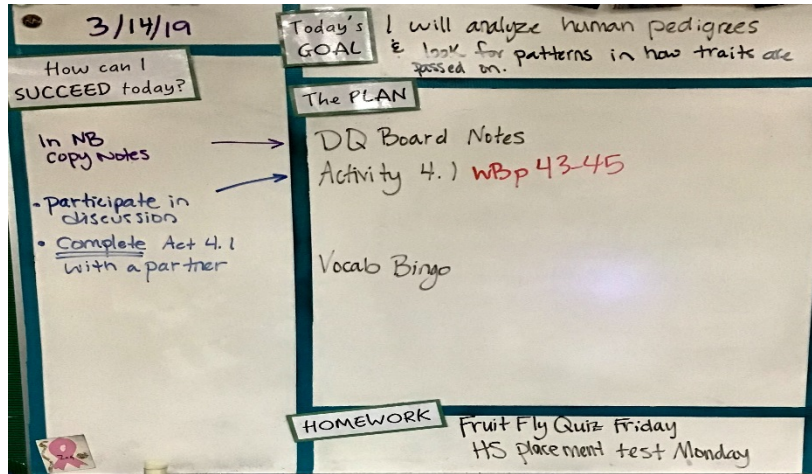 3/14/19
How can I
SUCCEED today?
In NB
copy Notes
• participate in
discussion
• Complete Act 4.1
with a partner
Today's
GOAL
I will analyze human pedigrees
& look for patterns in how traits are
passed on.
The PLAN
DQ Board Notes
Activity 4.1 WBp 43-45
Vocab Bingo
HOMEWORK
Fruit Fly Quiz Friday
HS placement test Monday